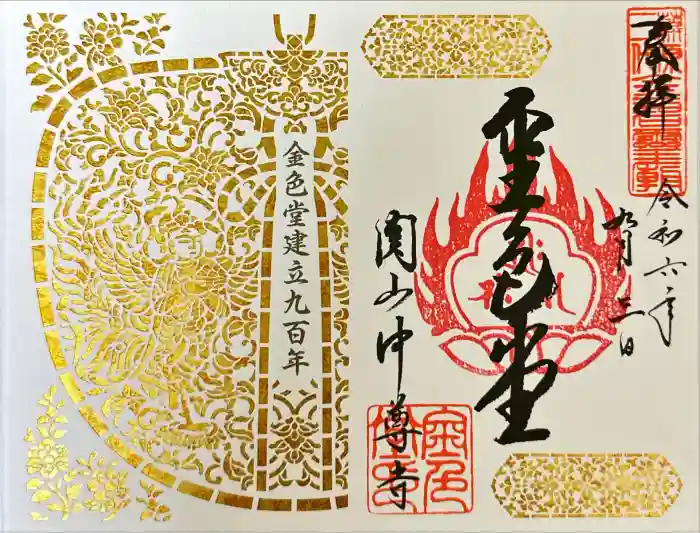 奉拝
令和六年
九月三日
金色堂
関山中尊寺
金色堂
金色堂建立九百年